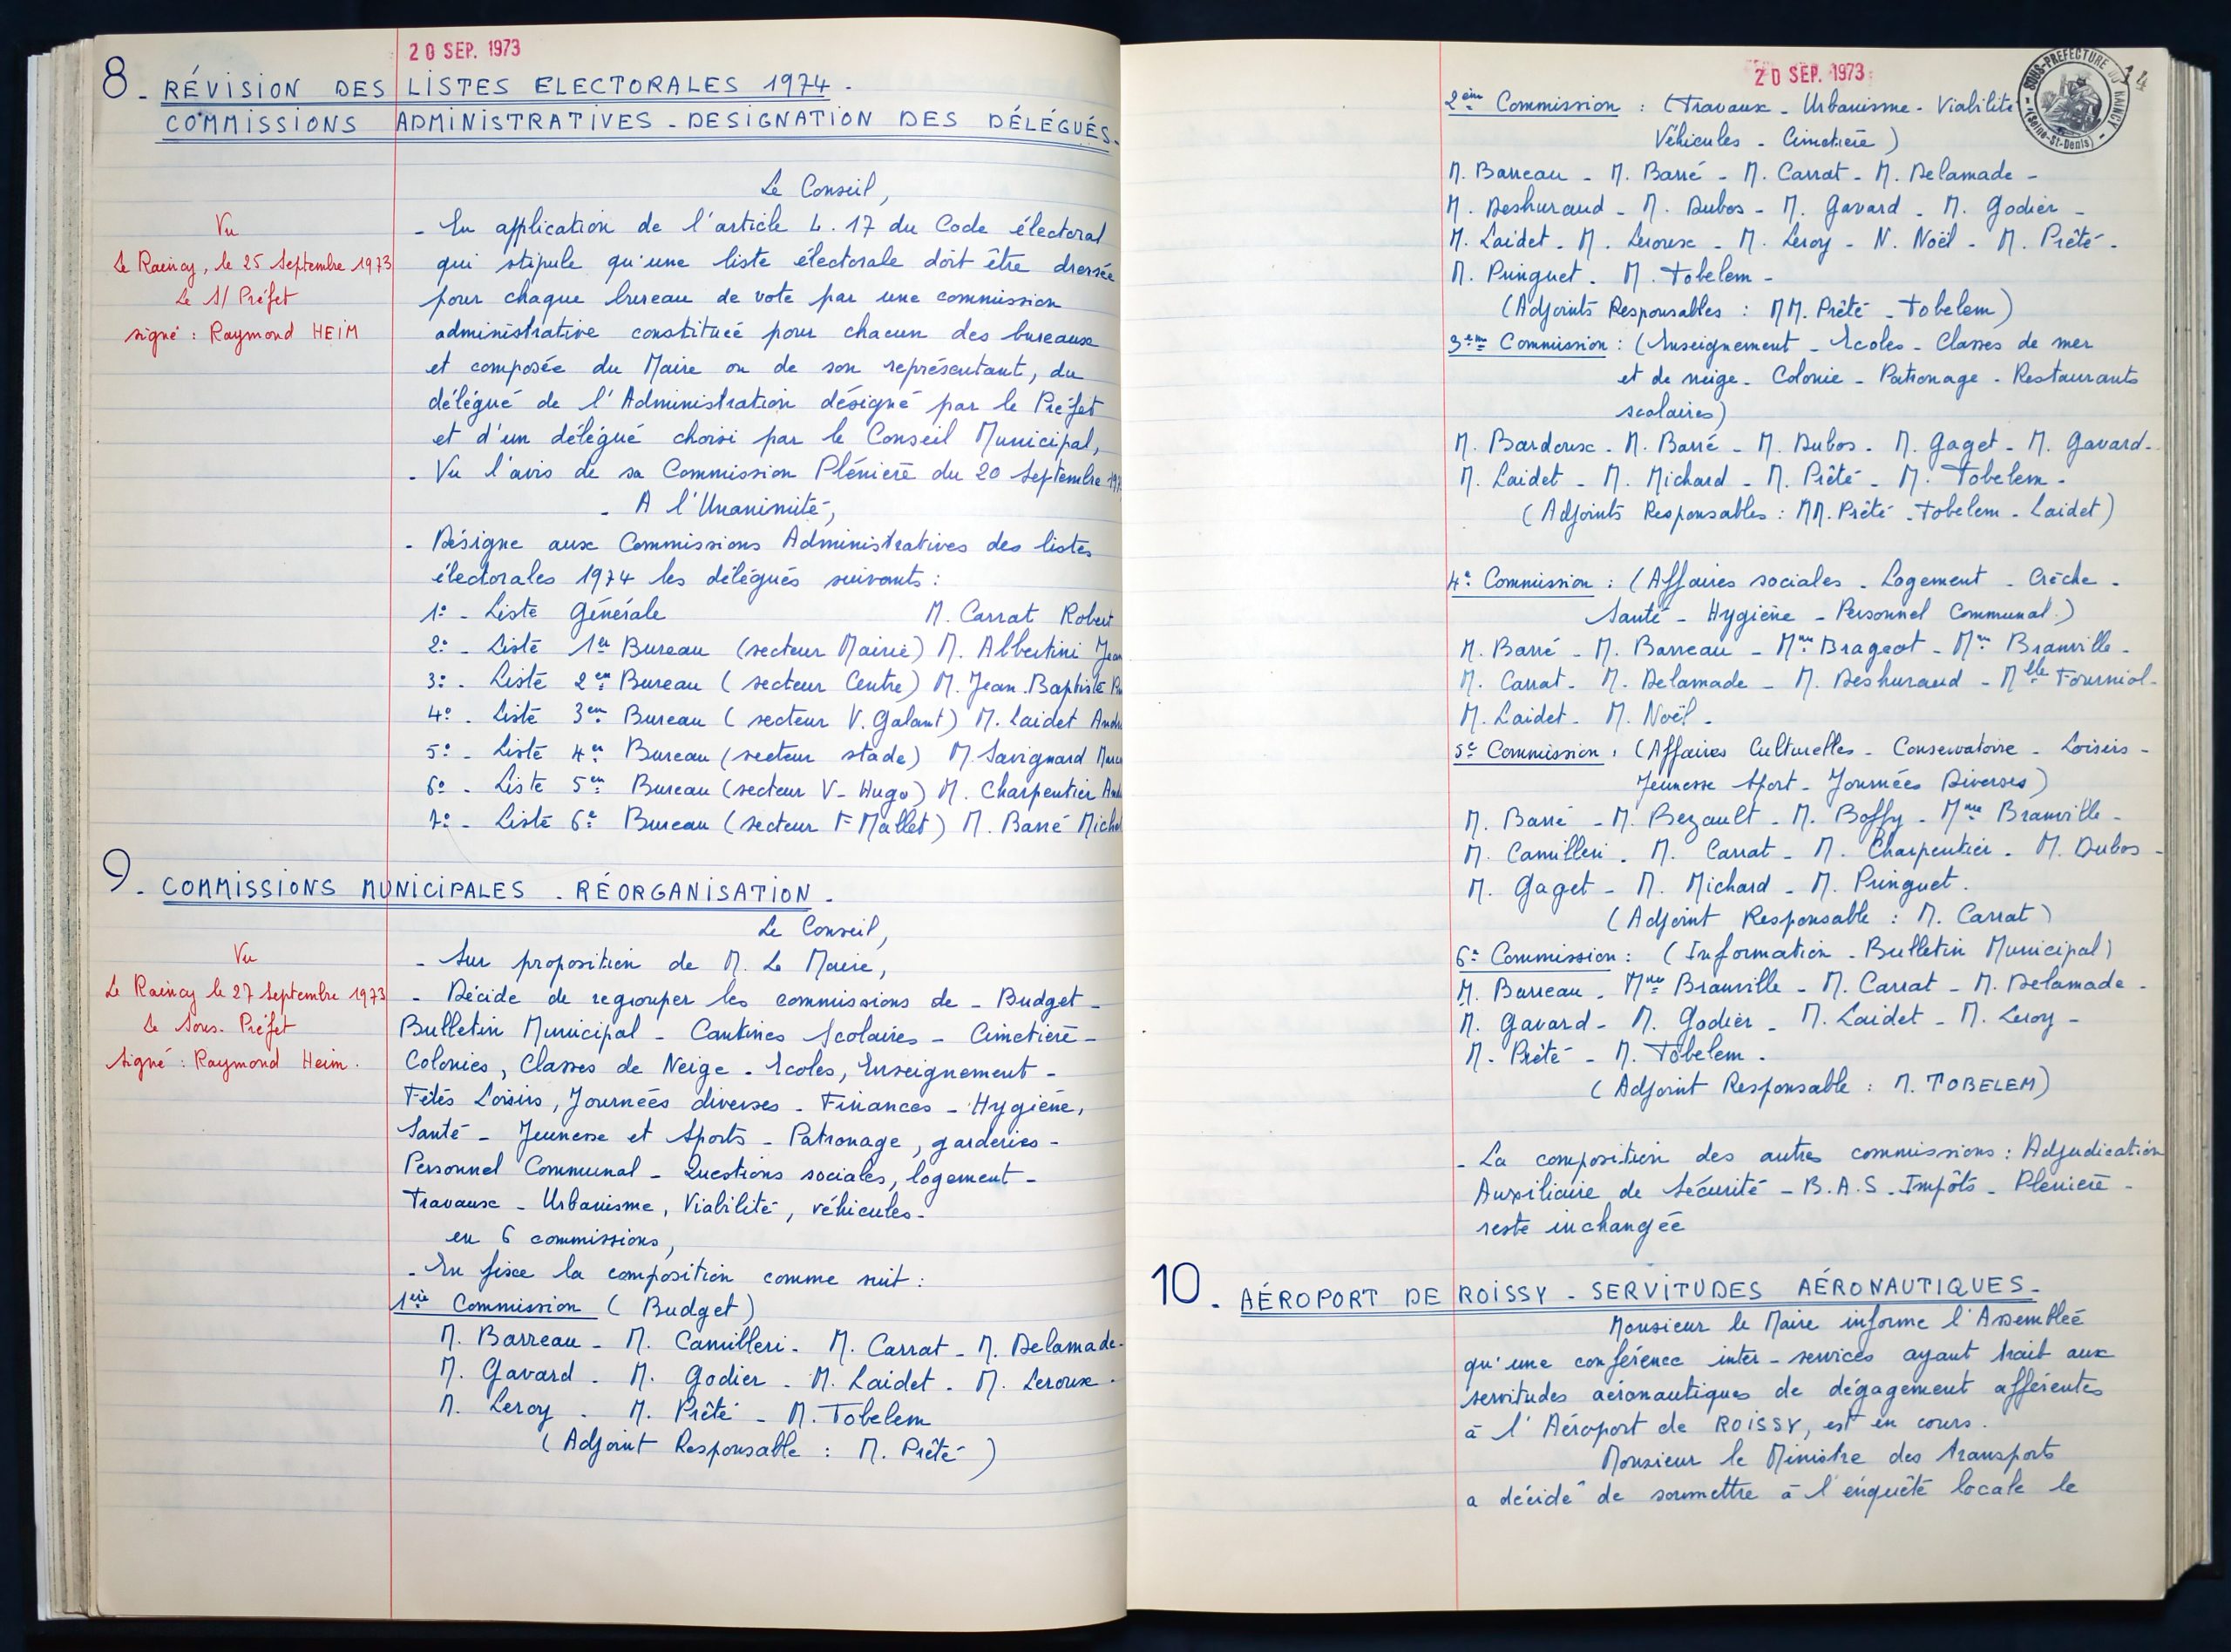 20 SEP. 1973
8 - RÉVISION DES LISTES ELECTORALES 1974 -
COMMISSIONS ADMINISTRATIVES - DESIGNATION DES DÉLÉGUÉS -
Le Conseil,
Vu
Le Raincy, le 25 Septembre 1973
Le S/ Préfet
signé : Raymond HEIM
- En application de l'article L. 17 du Code électoral
qui stipule qu'une liste électorale doit être dressée
pour chaque bureau de vote par une commission
administrative constituée pour chacun des bureaux
et composée du Maire ou de son représentant, du
délégué de l'Administration désigné par le Préfet
et d'un délégué choisi par le Conseil Municipal,
- Vu l'avis de sa Commission Plénière du 20 Septembre 197
- A l'Unanimité,
- Désigne aux Commissions Administratives des listes
électorales 1974 les délégués suivants :
1° - Liste Générale M. Carrat Robert
2° - Liste 1er Bureau (secteur Mairie) M. Albertini Jean
3° - Liste 2em Bureau (secteur Centre) M. Jean-Baptiste
4° - Liste 3em Bureau (secteur V. Galant) M. Laidet André
5° - Liste 4em Bureau (secteur stade) M. Savignard Marc
6° - Liste 5em Bureau (secteur V- Hugo) M. Charpentier And
7° - Liste 6e Bureau (secteur F Mallet) M. Barré Michel
9 - COMMISSIONS MUNICIPALES - RÉORGANISATION -
Le Conseil,
Vu
Le Raincy le 27 Septembre 1973
Le Sous-Préfet
Signé : Raymond Heim.
- Sur proposition de M. Le Maire,
- Décide de regrouper les commissions de - Budget -
Bulletin Municipal - Cantines Scolaires - Cimetière -
Colonies, Classes de Neige - Ecoles, Enseignement -
Fêtes Loisirs, Journées diverses - Finances - Hygiène,
Santé - Jeunesse et Sports - Patronage, garderies -
Personnel Communal - Questions sociales, logement -
Travaux - Urbanisme, Viabilité, véhicules -
en 6 commissions,
- En fixe la composition comme suit :
1ère Commission ( Budget )
M. Barreau - M. Camilleri - M. Carrat - M. Delamade -
M. Gavard - M. Godier - M. Laidet - M. Leroux -
M. Leroy - M. Prêté - M. Tobelem
( Adjoint Responsable : M. Prêté )
20 SEP. 1973
SOUS-PREFECTURE DU RAINCY
(Seine-St-Denis)
2ème Commission : (Travaux - Urbanisme - Viabilité
Véhicules - Cimetière )
M. Barreau - M. Barré - M. Carrat - M. Delamade -
M. Deshuraud - M. Dubos - M. Gavard - M. Godier -
M. Laidet - M. Leroux - M. Leroy - N. Noël - M. Prêté -
M. Pringuet - M. Tobelem -
(Adjoints Responsables : MM. Prêté - Tobelem)
3ème Commission : (Enseignement - Ecoles - Classes de mer
et de neige - Colonie - Patronage - Restaurants
scolaires)
M. Bardoux - M. Barré - M. Dubos - M. Gaget - M. Gavard -
M. Laidet - M. Michard - M. Prêté - M. Tobelem -
( Adjoints Responsables : MM. Prêté - Tobelem - Laidet )
4e Commission : (Affaires sociales - Logement - Crèche -
Santé - Hygiène - Personnel Communal.)
M. Barré - M. Barreau - Mme Brageot - Mme Branville -
M. Carrat - M. Delamade - M. Deshuraud - Mlle Fourniol -
M. Laidet - M. Noël -
5e Commission : (Affaires Culturelles - Conservatoire - Loisirs -
Jeunesse Sport - Journées Diverses )
M. Barré - M. Bezault - M. Boffy - Mme Branville -
M. Camilleri - M. Carrat - M. Charpentier - M. Dubos -
M. Gaget - M. Michard - M. Pringuet.
( Adjoint Responsable : M. Carrat )
6e Commission : ( Information - Bulletin Municipal )
M. Barreau - Mme Branville - M. Carrat - M. Delamade -
M. Gavard - M. Godier - M. Laidet - M. Leroy -
M. Prêté - M. Tobelem.
( Adjoint Responsable : M. TOBELEM )
- La composition des autres commissions : Adjudication
Auxiliaire de Sécurité - B.A.S - Impôts - Plenière -
reste inchangée
10 - AÉROPORT DE ROISSY - SERVITUDES AÉRONAUTIQUES -
Monsieur le Maire informe l'Assemblée
qu'une conférence inter-services ayant trait aux
servitudes aéronautiques de dégagement afférentes
à l'Aéroport de ROISSY, est en cours.
Monsieur le Ministre des transports
a décidé de soumettre à l'enquête locale le